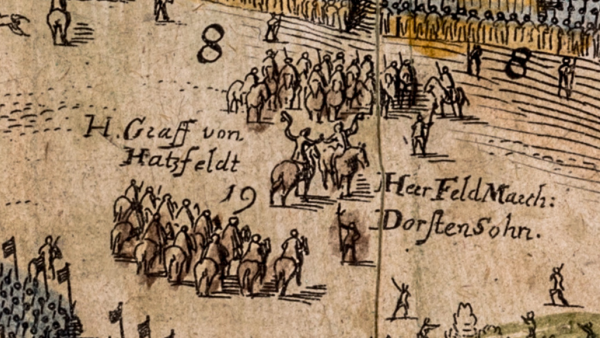 8
8
H. Graff von
Hatzfeldt
19
Heer Feld March:
Dorstensohn.